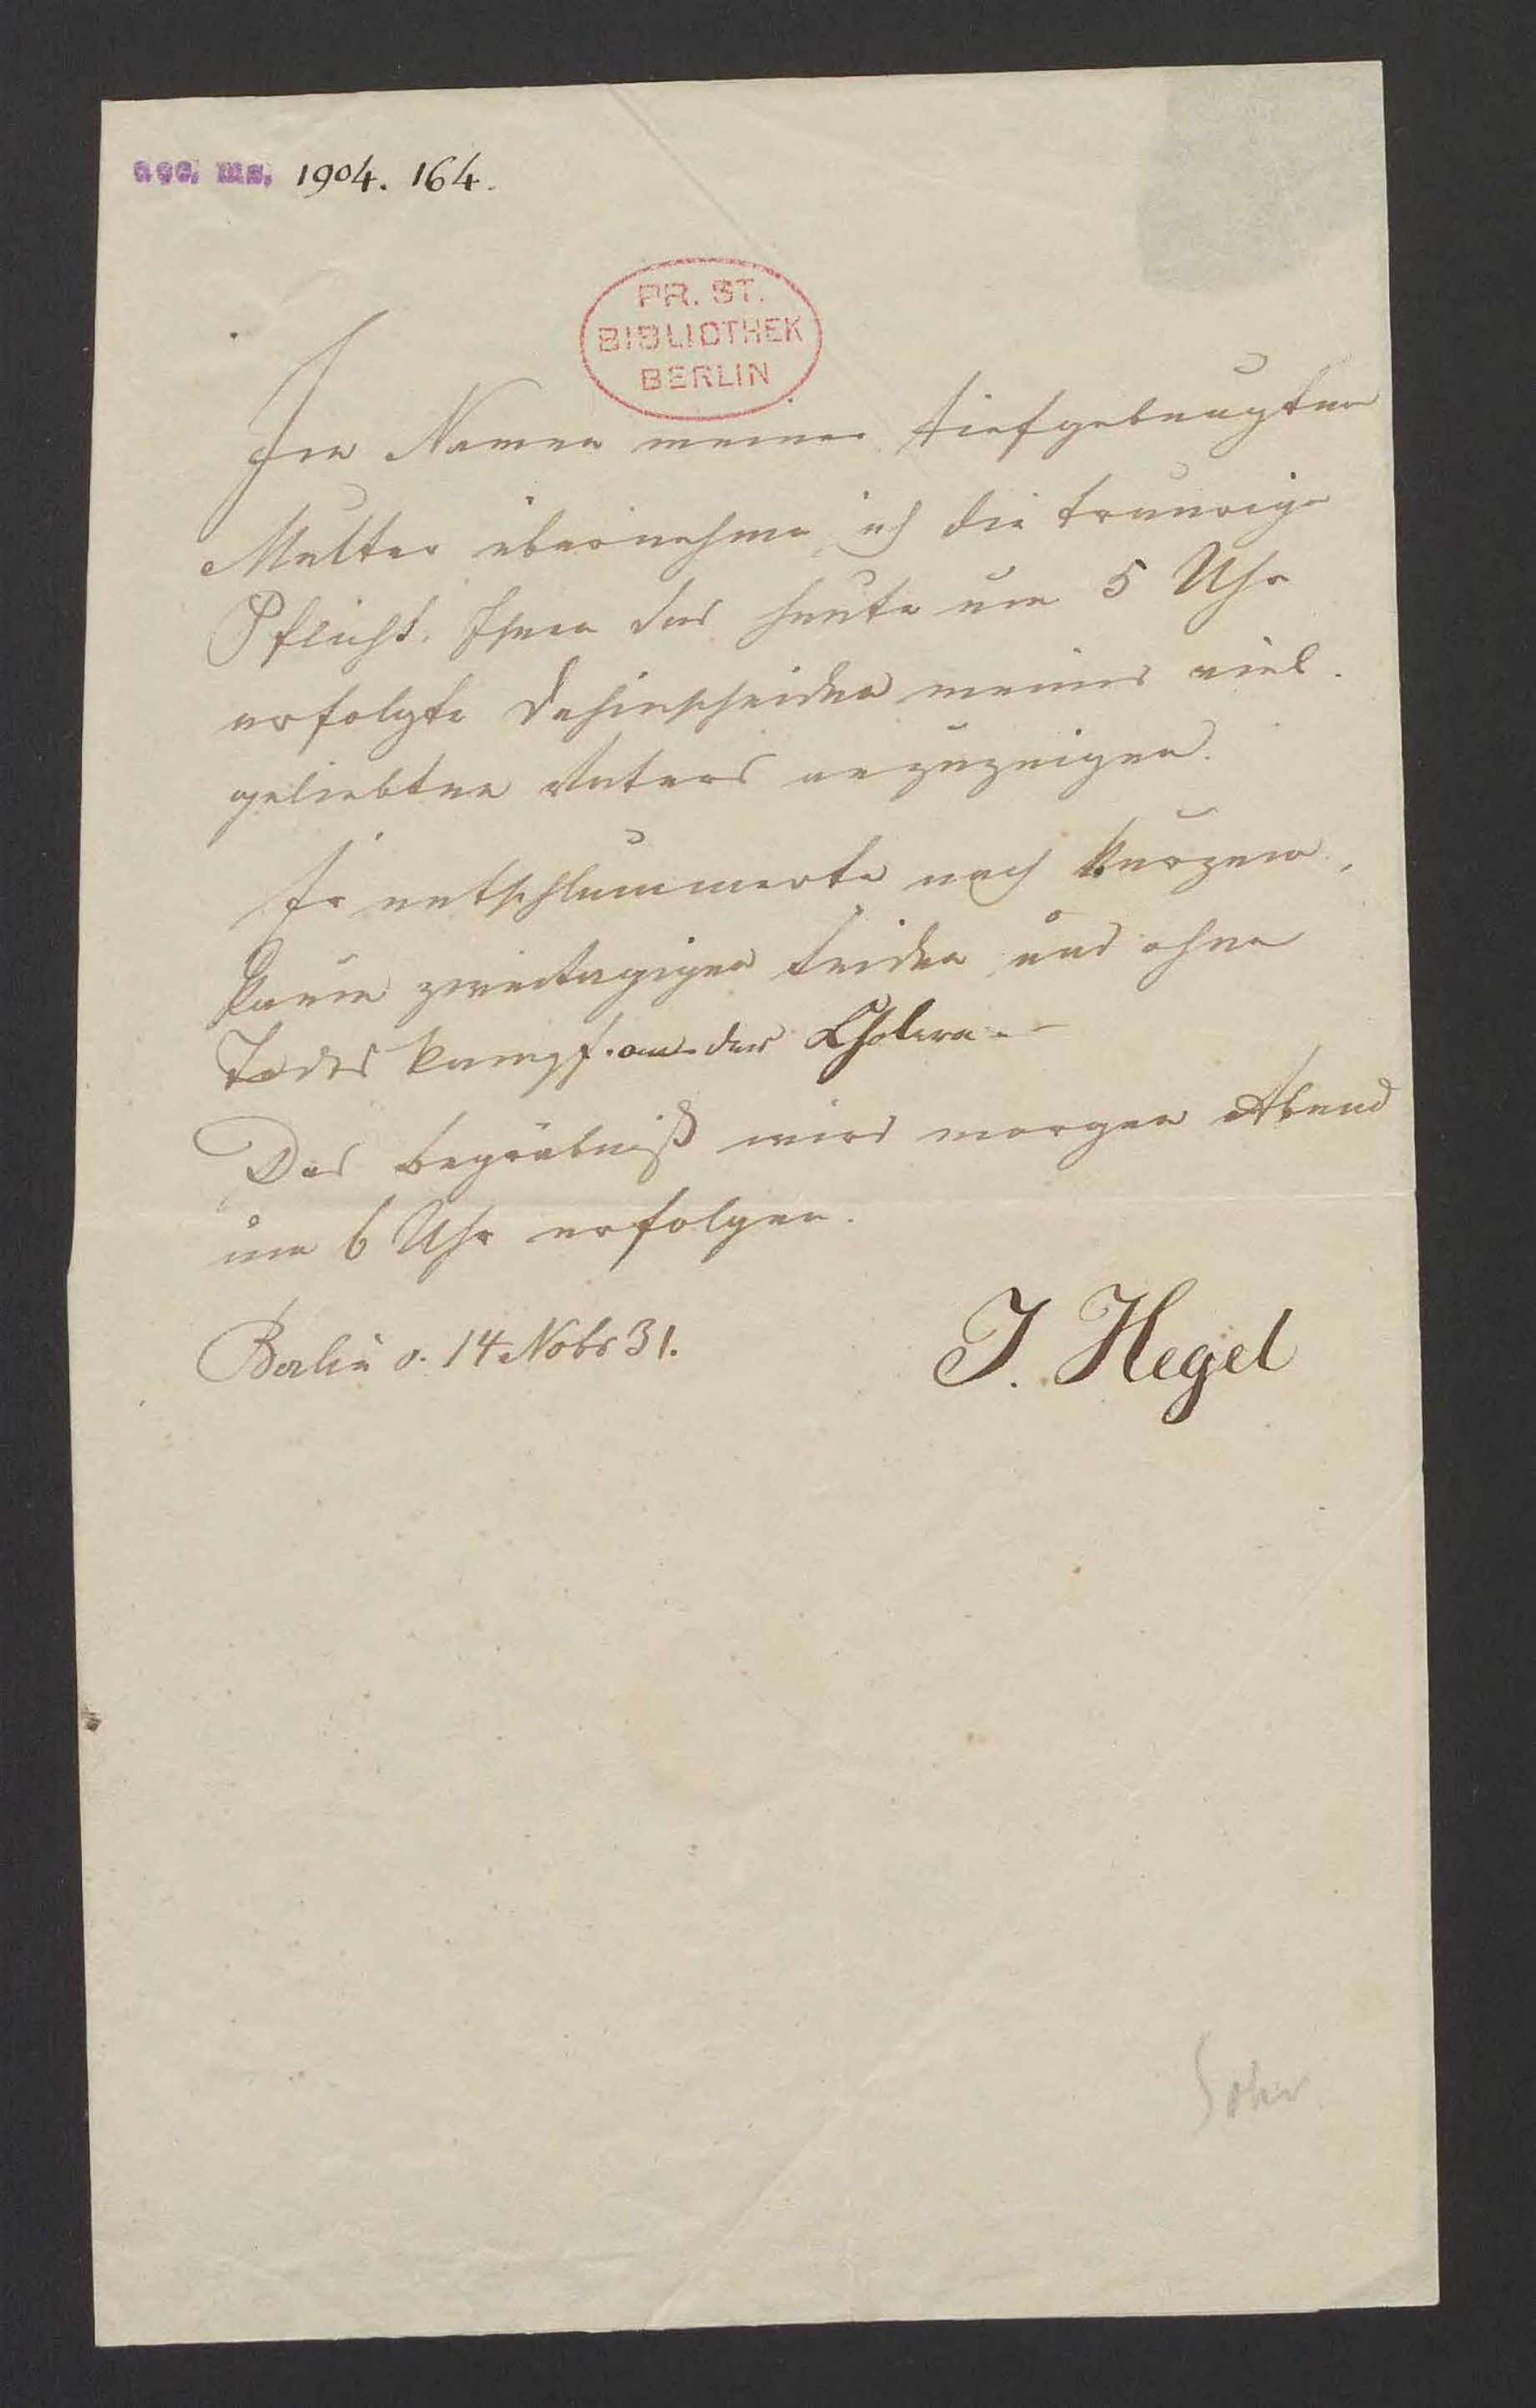 acc. ms. 1904. 164.
PR. ST.
BIBLIOTHEK
BERLIN
Im Namen meiner tiefgebeugten
Mutter übernehme ich die traurige
Pflicht, Ihnen das heute um 5 Uhr
erfolgte Dahinscheiden meines viel
geliebten Vaters anzuzeigen.
Er entschlummerte nach kurzem,
kaum zweitägigen Leiden und ohne
Todeskampf an der Cholera. –
Das Begräbniß wird morgen Abend
um 6 Uhr erfolgen.
Berlin d. 14 Nobr 31.
I. Hegel
Sohn